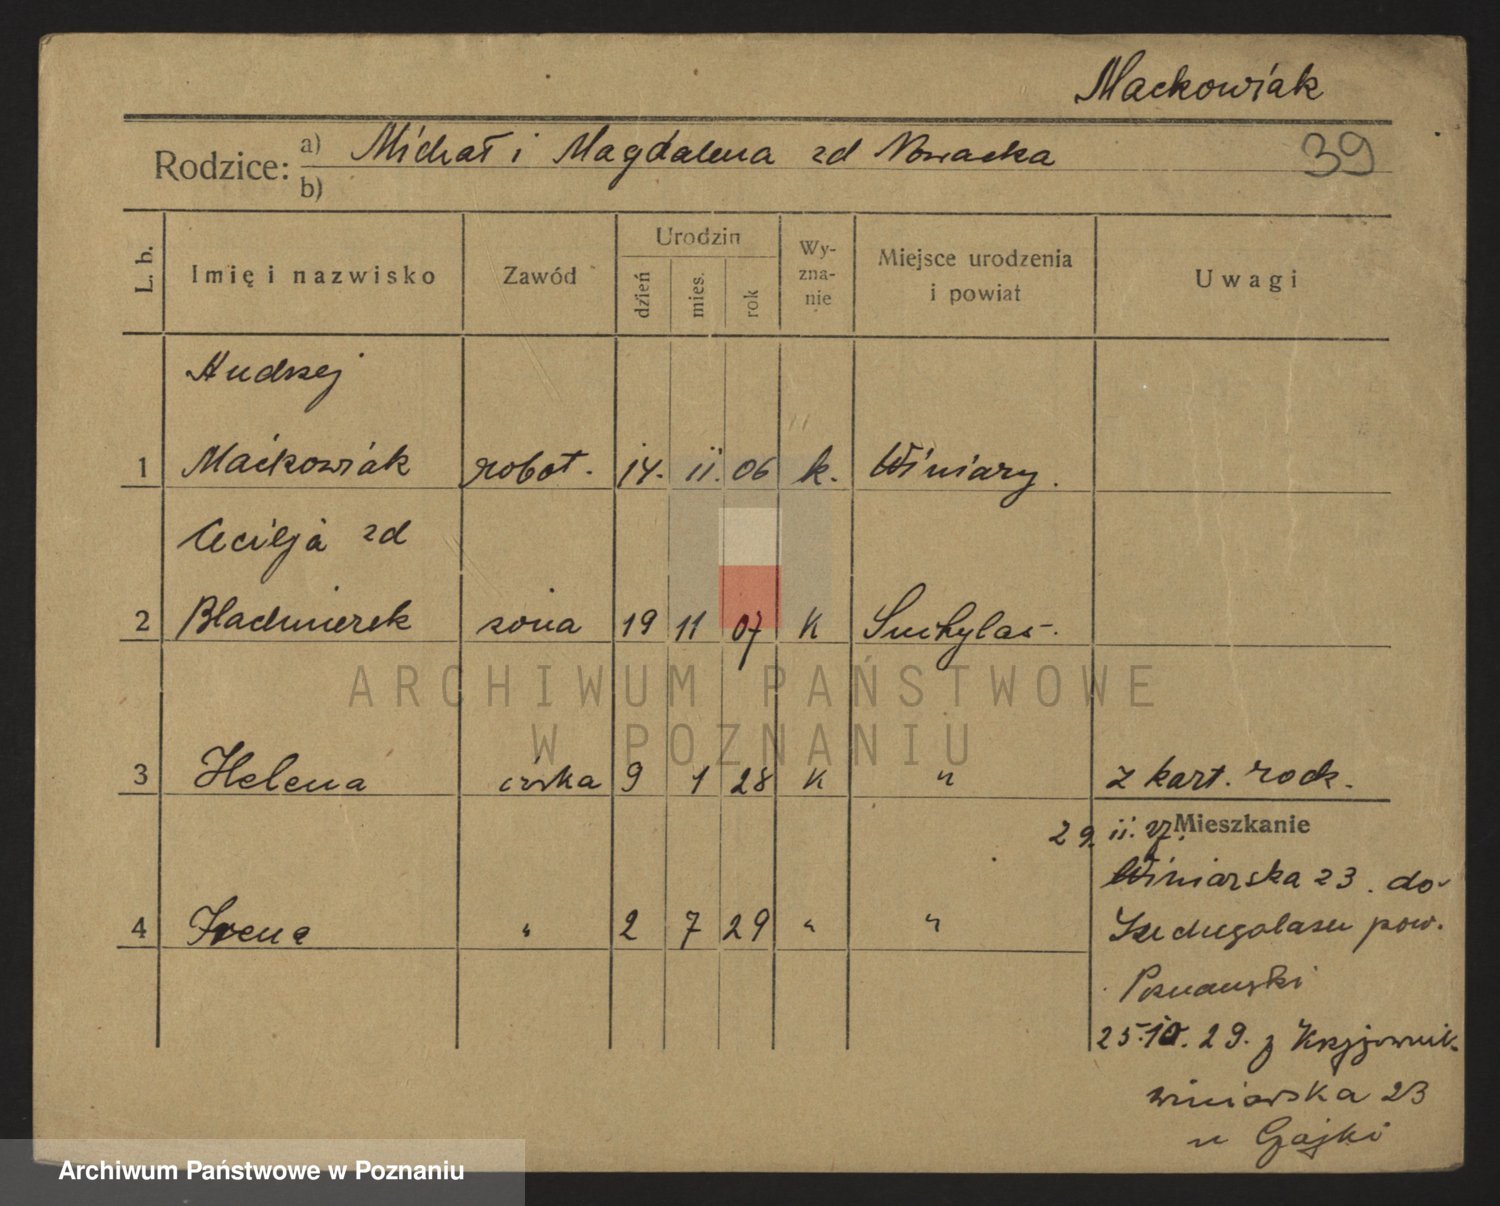 Maćkowiak
39
Rodzice: a) Michał i Magdalena zd Nowacka
b)
L. b. Imię i nazwisko Zawód Urodzin dzień mies. rok Wy-zna-nie Miejsce urodzenia i powiat Uwagi
Andrzej
1 Maćkowiak robot. 14. 11. 06 k. Winiary.
Cecilja zd
2 żona 19 11 07 K Suchylas.
3 Helena córka 9 1 28 K " z kart. rodz.
29. 11. 27. Mieszkanie
4 Irena " 2 7 29 " "
Winiarska 23. do
pow.
Poznański
25.10.29. z
winiarska 23
u Gajki
ARCHIWUM PAŃSTWOWE
W POZNANIU
Archiwum Państwowe w Poznaniu